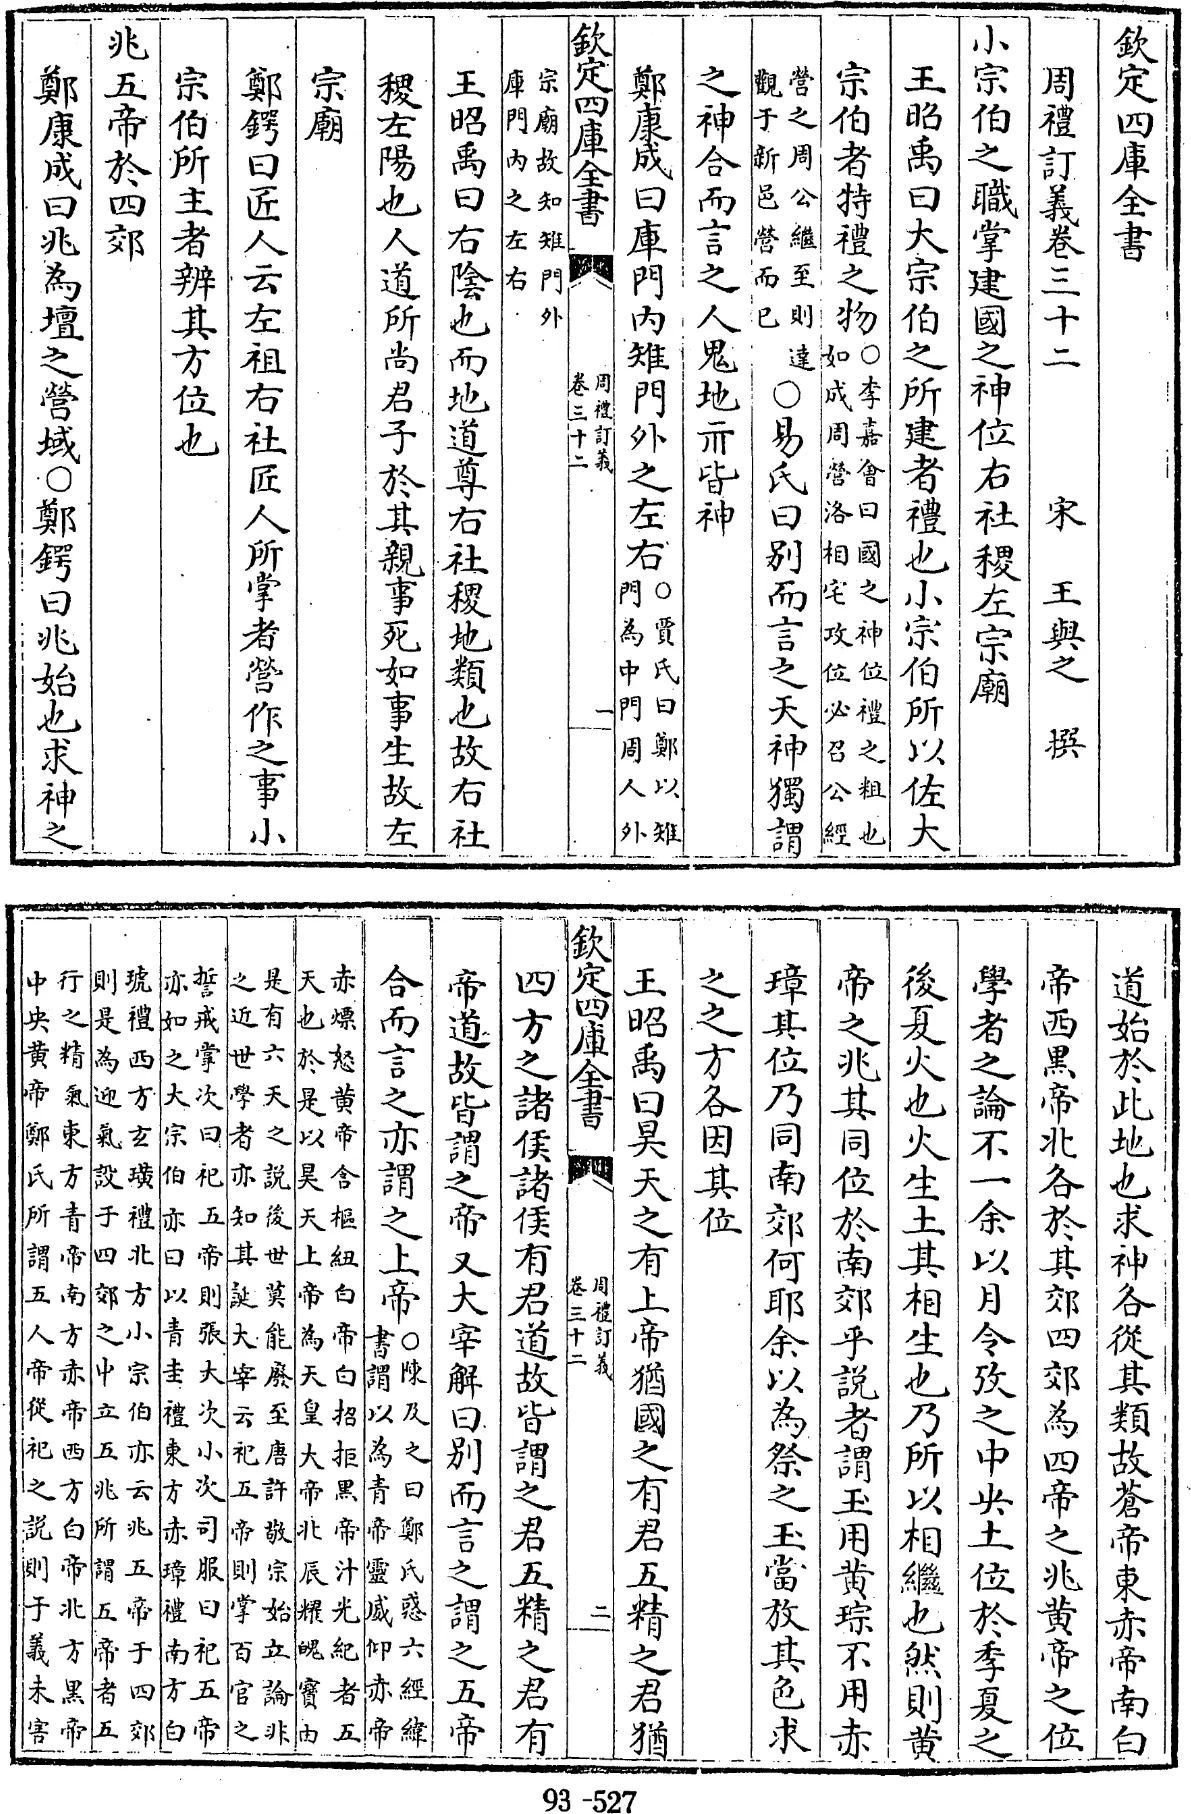 欽定四庫全書
周禮訂義卷三十二 宋 王與之 撰
小宗伯之職掌建國之神位右社稷左宗廟
王昭禹曰大宗伯之所建者禮也小宗伯所以佐大
宗伯者特禮之物○李嘉會曰國之神位禮之粗也
如成周營洛相宅攻位必召公經
營之周公繼至則達
觀于新邑營而已
○易氏曰別而言之天神獨謂
之神合而言之人鬼地示皆神
鄭康成曰庫門内雉門外之左右○賈氏曰鄭以雉
門為中門周人外
欽定四庫全書
周禮訂義
卷三十二
一
宗廟故知雉門外
庫門内之左右
王昭禹曰右陰也而地道尊右社稷地類也故右社
稷左陽也人道所尚君子於其親事死如事生故左
宗廟
鄭鍔曰匠人云左祖右社匠人所掌者營作之事小
宗伯所主者辨其方位也
兆五帝於四郊
鄭康成曰兆為壇之營域○鄭鍔曰兆始也求神之
道始於此地也求神各從其類故蒼帝東赤帝南白
帝西黒帝北各於其郊四郊為四帝之兆黄帝之位
學者之論不一余以月令攷之中央土位於季夏之
後夏火也火生土其相生也乃所以相繼也然則黄
帝之兆其同位於南郊乎説者謂玉用黄琮不用赤
璋其位乃同南郊何耶余以為祭之玉當放其色求
之之方各因其位
王昭禹曰昊天之有上帝猶國之有君五精之君猶
欽定四庫全書
周禮訂義
卷三十二
二
四方之諸侯諸侯有君道故皆謂之君五精之君有
帝道故皆謂之帝又大宰解曰別而言之謂之五帝
合而言之亦謂之上帝○陳及之曰鄭氏惑六經緯
書謂以為青帝靈威仰赤帝
赤熛怒黄帝含樞紐白帝白招拒黒帝汁光紀者五
天也於是以昊天上帝為天皇大帝北辰耀魄寳由
是有六天之説後世莫能廢至唐許敬宗始立論非
之近世學者亦知其誕大宰云祀五帝則掌百官之
誓戒掌次曰祀五帝則張大次小次司服曰祀五帝
亦如之大宗伯亦曰以青圭禮東方赤璋禮南方白
琥禮西方玄璜禮北方小宗伯亦云兆五帝于四郊
則是為迎氣設于四郊之中立五兆所謂五帝者五
行之精氣東方青帝南方赤帝西方白帝北方黒帝
中央黄帝鄭氏所謂五人帝從祀之説則于義未害
93-527